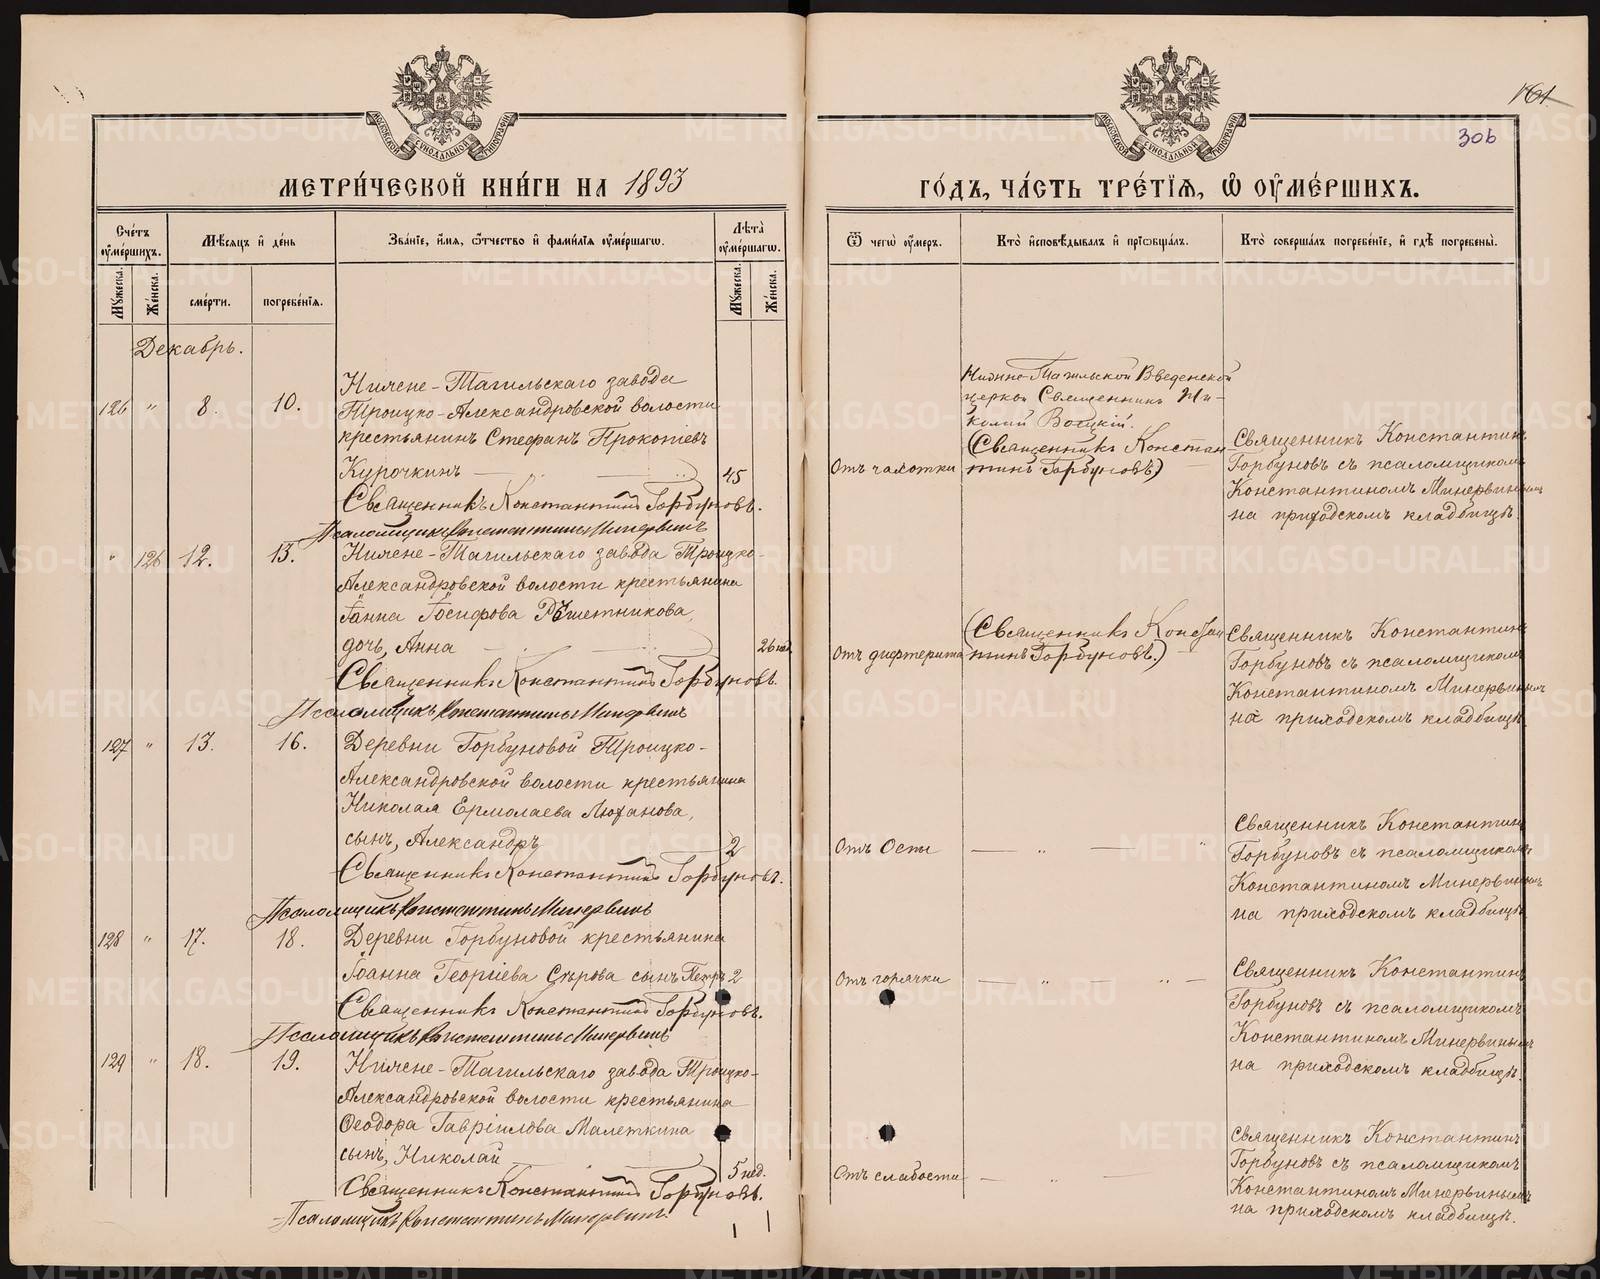 161
306
МОСКОВСКОЙ СѴНОДАЛЬНОЙ ТИПОГРАФІИ
МОСКОВСКОЙ СѴНОДАЛЬНОЙ ТИПОГРАФІИ
МЕТРИ́ЧЕСКОЙ КНИ́ГИ НА 1893
ГО́ДЪ, ЧА́СТЬ ТРЕ́ТЇѦ, Ѽ ОУ҆МЕ́РШИХЪ.
Сче́тъ оу҆ме́ршихъ.
Мꙋ́жеска.
Же́нска.
Мѣ́сѧцъ и҆ де́нь
сме́рти.
погребе́нїѧ.
Зва́нїе, и҆́мѧ, ѻ҆́тчество и҆ фами́лїѧ оу҆ме́ршагѡ.
Лѣ́та оу҆ме́ршагѡ.
Мꙋ́жеска.
Же́нска.
Ѿ чегѡ̀ оу҆́меръ.
Кто̀ и҆сповѣ́дывалъ и҆ прїѡбща́лъ.
Кто̀ соверша́лъ погребе́нїе, и҆ гдѣ̀ погребены̀.
Декабрь.
126 " 8. 10.
Нижне-Тагильскаго завода
Троицко-Александровской волости
крестьянинъ Стефанъ Прокопіевъ
Курочкинъ 45
Священникъ Константинъ Горбуновъ.
Псаломщикъ Константинъ Минервинъ
Отъ чахотки
Нижне-Тагильской Введенской
церкви Священникъ Ни-
колай
(Священникъ Констан
тинъ Горбуновъ)
Священникъ Константинъ
Горбуновъ съ псаломщикомъ
Константиномъ Минервинымъ
на приходскомъ кладбищѣ.
" 126 12. 13.
Нижне-Тагильскаго завода Троицко-
Александровской волости крестьянина
Іоанна Іосифова Рѣшетникова,
дочь, Анна 26 нед.
Священникъ Константинъ Горбуновъ.
Псаломщикъ Константинъ Минервинъ
Отъ дифтерита
(Священникъ Констан
тинъ Горбуновъ.)
Священникъ Константинъ
Горбуновъ съ псаломщикомъ
Константиномъ Минервинымъ
на приходскомъ кладбищѣ.
127 " 13. 16.
Деревни Горбуновой Троицко-
Александровской волости крестьянина
Николая Ермолаева Люханова,
сынъ, Александръ 2
Священникъ Константинъ Горбуновъ.
Псаломщикъ Константинъ Минервинъ
Отъ Оспы — " — "
Священникъ Константинъ
Горбуновъ съ псаломщикомъ
Константиномъ Минервинымъ
на приходскомъ кладбищѣ
128 " 17. 18.
Деревни Горбуновой крестьянина
Іоанна Георгіева Сѣрова сынъ Петръ 2
Священникъ Константинъ Горбуновъ.
Псаломщикъ Константинъ Минервинъ
Отъ горячки — " — " —
Священникъ Константинъ
Горбуновъ съ псаломщикомъ
Константиномъ Минервинымъ
на приходскомъ кладбищѣ.
129 " 18. 19.
Нижне-Тагильскаго завода Троицко-
Александровской волости крестьянина
Ѳеодора Гавріилова Малеткина
сынъ, Николай 5 нед.
Священникъ Константинъ Горбуновъ.
Псаломщикъ Константинъ Минервинъ.
Отъ слабости — " —
Священникъ Константинъ
Горбуновъ съ псаломщикомъ
Константиномъ Минервинымъ
на приходскомъ кладбищѣ.
METRIKI.GASO-URAL.RU